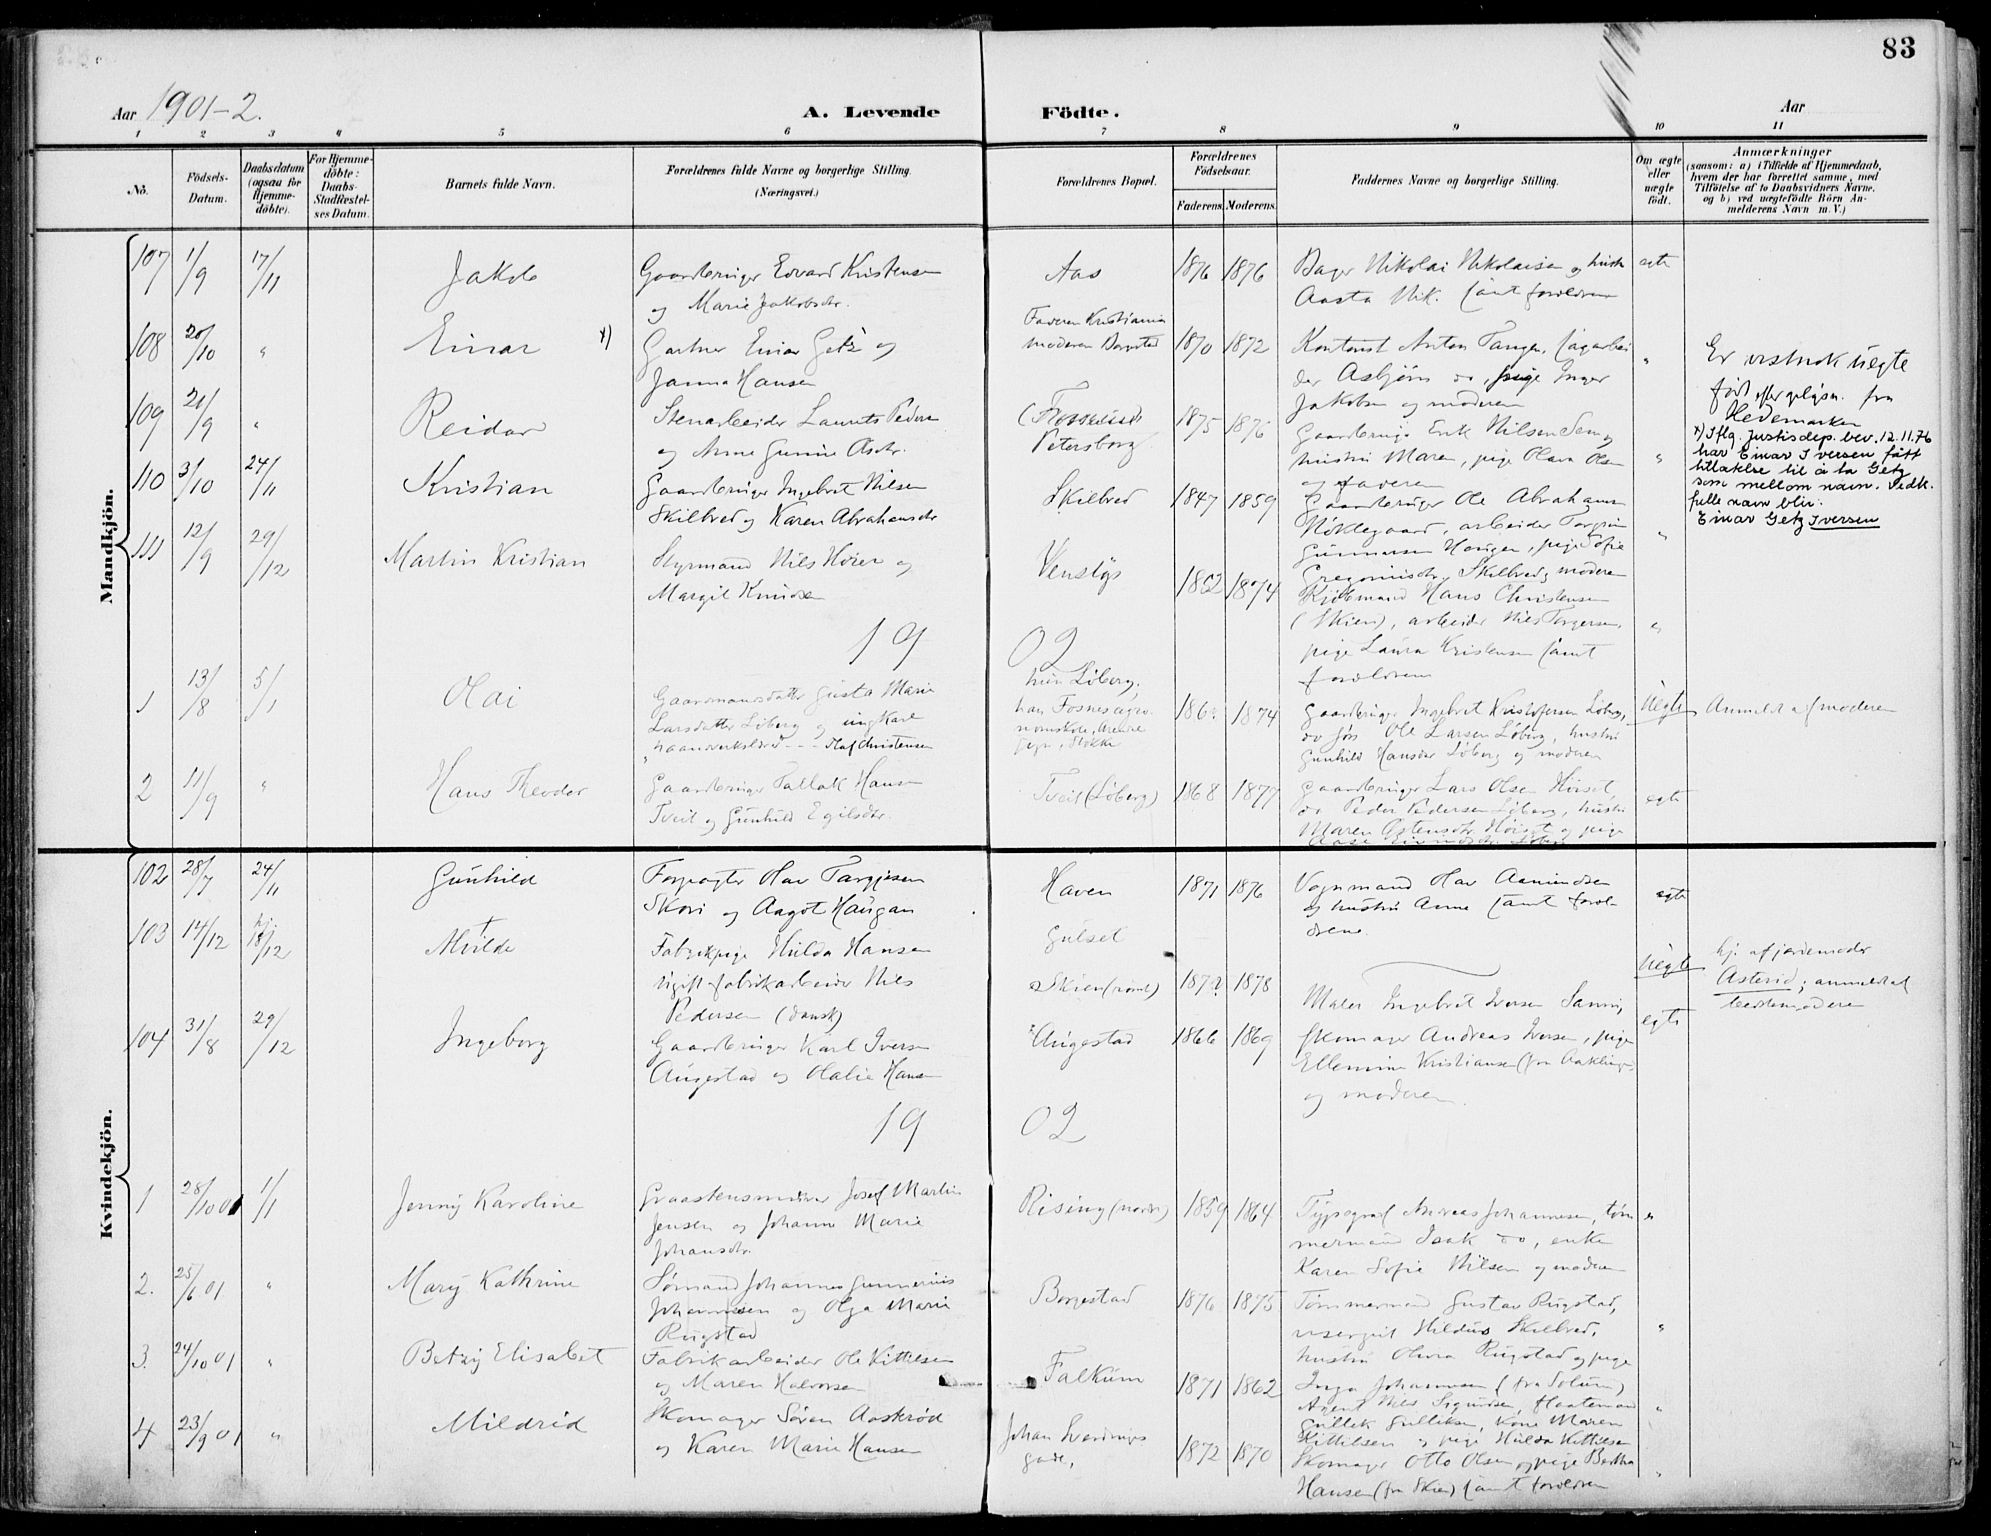 83
Aar 1901-2.
A. Levende
Födte.
Aar
1 2 3 4 5 6 7 8 9 10 11
No.
Födsels-Datum.
Daabsdatum (ogsaa for Hjemme-döbte).
For Hjemme-döbte: Daabs-Stadfæstel-ses Datum.
Barnets fulde Navn.
Forældrenes fulde Navne og borgerlige Stilling.
(Næringsvei.)
Forældrenes Bopæl.
Forældrenes Födselsaar.
Faderens. Moderens.
Faddernes Navne og borgerlige Stilling.
Om ægte eller uægte födt.
Anmærkninger
(saasom: a) i Tilfælde af Hjemmedaab, hvem der har forrettet samme, med Tilföielse af to Daabsvidners Navne, og b) ved uægtefödte Börn An-melderens Navn m. V.)
Mandkjön.
107 1/9 17/11 Jakob
Gaardbruger Edvard Kristensen
og Marie Jakobsdr.
Aas 1876 1876
Bager Nikolai Nikolaisen og hustr
Aasta Nik. samt forældrene
egte
108 20/10 " Einar x)
Gartner Einar Getz og
Janna Hansen
Faderen Kristiania
moderen Borgestad 1870 1872
Kontorist Anton Tangen, fagarbei
der Asbjørn do, pige Inger
Jakobsen og moderen
"
Er vistnok uegte
født efter oplysn. fra
Hedemarken
x) Iflg. justisdep. bev. 12.11.76
har Einar Iversen fått
tillatelse til å ta Getz
som mellomnavn. Vedk.
fulle navn blir:
Einar Getz Iversen
109 21/9 " Reidar
Stenarbeider Laurits Peders
og Anne Gurine Aschr.
Petersborg 1875 1876
Gaardbruger Erik Nilsen Sem og
hustru Maren, pige Olava Olsen
og faderen
"
110 3/10 24/11 Kristian
Gaardbruger Ingebret Nilsen
Skilbred og Karen Abrahamsdr
Skilbred 1847 1859
Gaardbruger Ole Abrahamsen
Nöklegaard, arbeider Torgrim
Gunnarsen Haugen, pige Sofie
Gregoriusdr. Skilbred og moderen
"
111 12/9 29/12 Martin Kristian
Styrmand Nils Hörer og
Margit Knudsen
Venstøp 1862 1874
Kjöbmand Hans Christensen
(Skien), arbeider Nils Torgersen,
pige Laura Kristensen samt
forældrene
"
19 02
1 13/8 5/1 Olai
Gaardmandsdatter Gusta Marie
Larsdatter Löberg og ungkarl
haandverkslærd - - - Olaf Christensen
hun Löberg,
han Fosnesagro-
nomskole, Arendal
, Stokke
1874
Gaardbruger Ingebret Kristofersen Löberg,
do søs Ole Larsen Löberg, hustru
Gunhild Hansdr Löberg og moderen
Uegte
Anmeldt af moderen
2 11/9 " Hans Theodor
Gaardbruger Tallak Hansen
Tveit og Gunhild Egilsdr.
Tveit (Löberg) 1868 1877
Gaardbruger Lars Olsen Hörset,
do Peder Pedersen Löberg, hustru
Maren Östensdr. Hörset og pige
Aase Eivindsdr. Löberg
egte
Kvindekjön.
102 28/7 24/11 Gunhild
Forpagter Olav Targjesen
Skori og Aagot Haugan
Haven 1871 1876
Vognmand Olav Aamundsen
og hustru Anne samt foræl-
drene
egte
103 14/12 hj. 18/12 Milde
Fabrikpige Hilda Hansen
Ugift fabrikarbeider Nils
Pedersen (dansk)
Gulset
Skien 1872? 1878
Uegte
hj. af jordemoder
Asterid; anmeldt af
bestemoderen
104 31/8 29/12 Ingeborg
Gaardbruger Karl Iversen
Augestad og Olalie Hansen
Augestad 1866 1869
Maler Ingebret Iversen Sanni,
skomager Andreas Iversen, pige
Ellemine Kristiansen (fra Baklinge
og moderen.
egte
19 02
1 28/10 01 1/1 Jenny Karoline
Graastensmurer Josef Martin
Jensen og Johanne Marie
Johansdr.
Rising (nordr) 1859 1864
Typograf Andreas Johannesen, töm
mermand Isak do, enke
Karen Sofie Nilsen og moderen
"
2. 25/6 01 " Mary Kathrine
Sömand Johannes Gunnerius
Johannesen og Olga Marie
Rugstad
Borgestad 1876 1875
Tömmermand Gustav Rugstad,
visergut Hildus Skilbred,
hustru Olava Rugstad og pige
Inga Johannesen (fra Solum)
"
3. 24/10 01 " Betzy Elisabet
Fabrikarbeider Ole Kittelsen
og Maren Halvorsen
Falkum 1871 1862
Agent Nils Sigurdsen, Flaatemand
Gullik Gulliksen, kone Maren
Kittilsen og pige Hilda Kittilsen
"
4 23/9 01 " Mildrid
Skomager Sören Aaskröd
og Karen Marie Hansen
Johan Sverdrups
gade, 1872 1870
Skomager Otto Olsen og pige Bertha
Hansen (fra Skien) samt forældrene
"